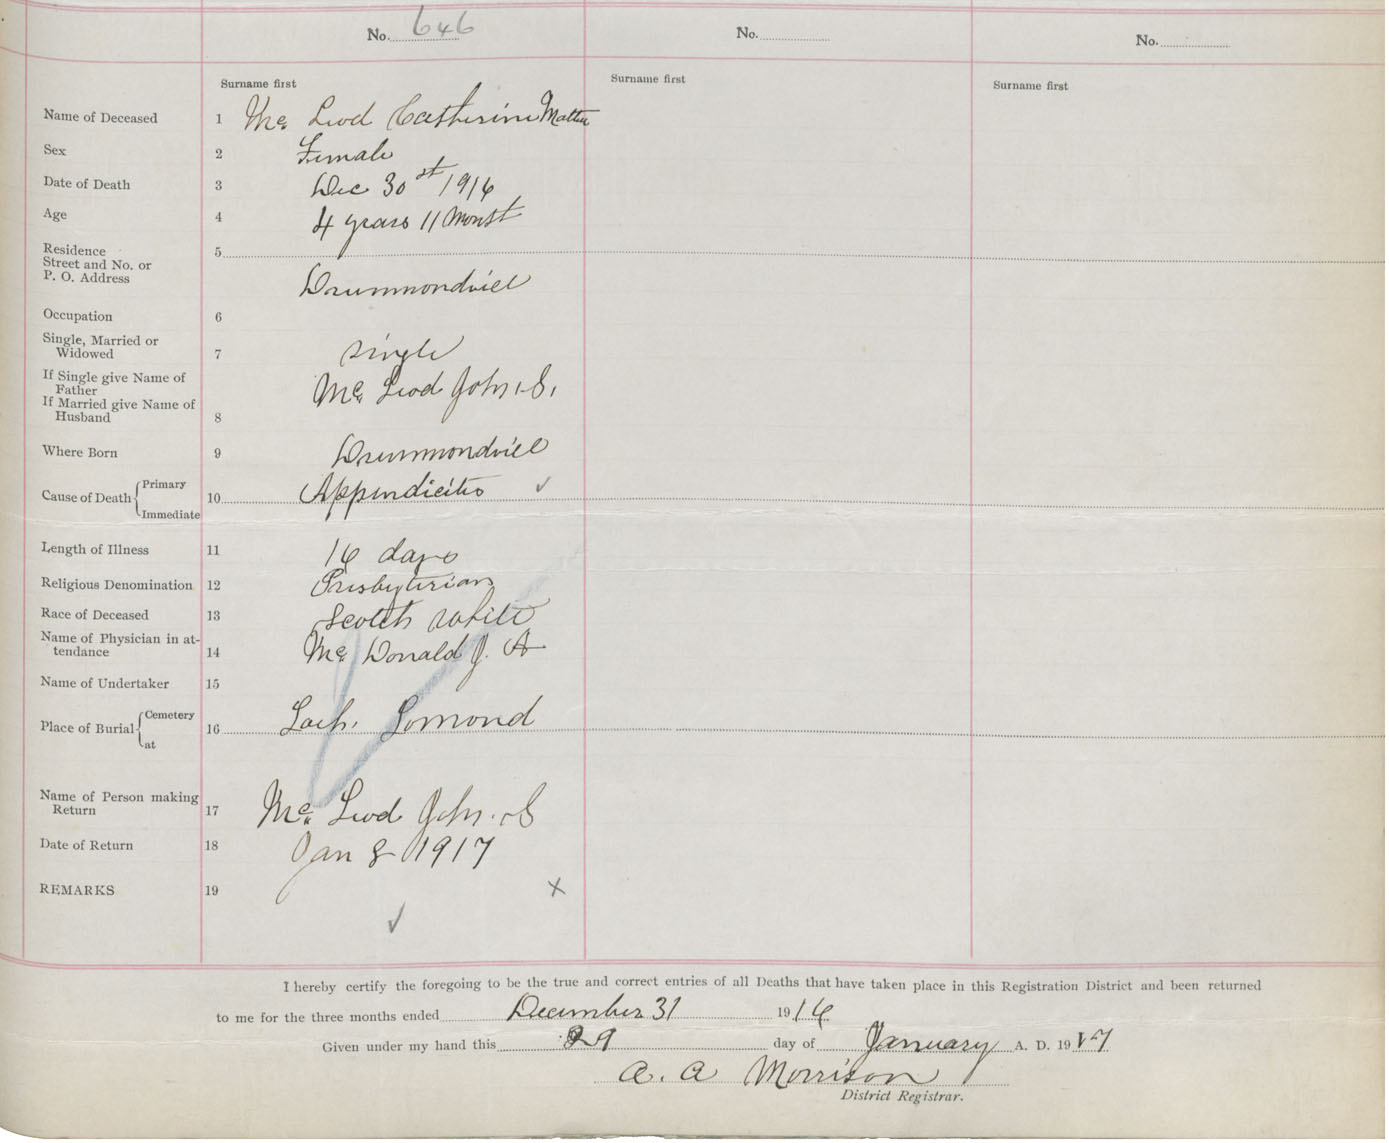 No. 646
No.
No.
Surname first
Surname first
Surname first
Name of Deceased 1 Mc Leod Catherine
Sex 2 Female
Date of Death 3 Dec 30st 1916
Age 4 4 years 11 Monst
Residence 5
Street and No. or
P. O. Address
Drummondviell
Occupation 6
Single, Married or
Widowed 7 single
If Single give Name of
Father
Mc Leod John. S.
If Married give Name of
Husband 8
Where Born 9 Drummondviell
Cause of Death Primary
Immediate 10 Appendicitis
Length of Illness 11 16 days
Religious Denomination 12 Presbyterian
Race of Deceased 13 Scotch White
Name of Physician in at-
tendance 14 Mc Donald J. A
Name of Undertaker 15
Place of Burial Cemetery
at 16 Loch. Lomond
Name of Person making
Return 17 Mc Leod John. S
Date of Return 18 Jan 8 1917
REMARKS 19
I hereby certify the foregoing to be the true and correct entries of all Deaths that have taken place in this Registration District and been returned
to me for the three months ended December 31 1916
Given under my hand this 29 day of January A. D. 1917
A. A Morrison
District Registrar.